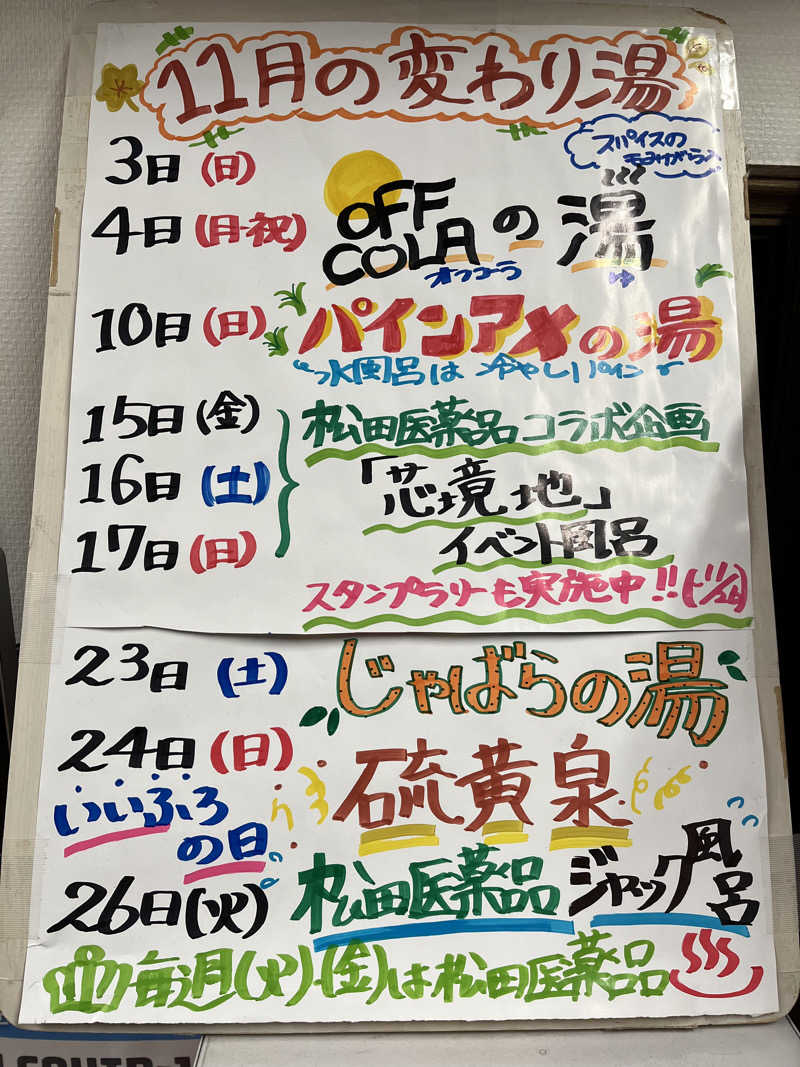 11月の変わり湯
スパイスの
3日(日)
4日(月・祝)
OFF
COLAの湯
オフコーラ
ゆ
10日(日)
パインアメの湯
"水風呂は冷やしパイン"
15日(金)
16日(土)
17日(日)
松田医薬品コラボ企画
「芯境地」
イベント風呂
スタンプラリーも実施中!!
23日(土)
じゃばらの湯
24日(日)
硫黄泉
いいふろ
の日
26日(火)
松田医薬品ジャック風呂
毎週(火)・(金)は松田医薬品